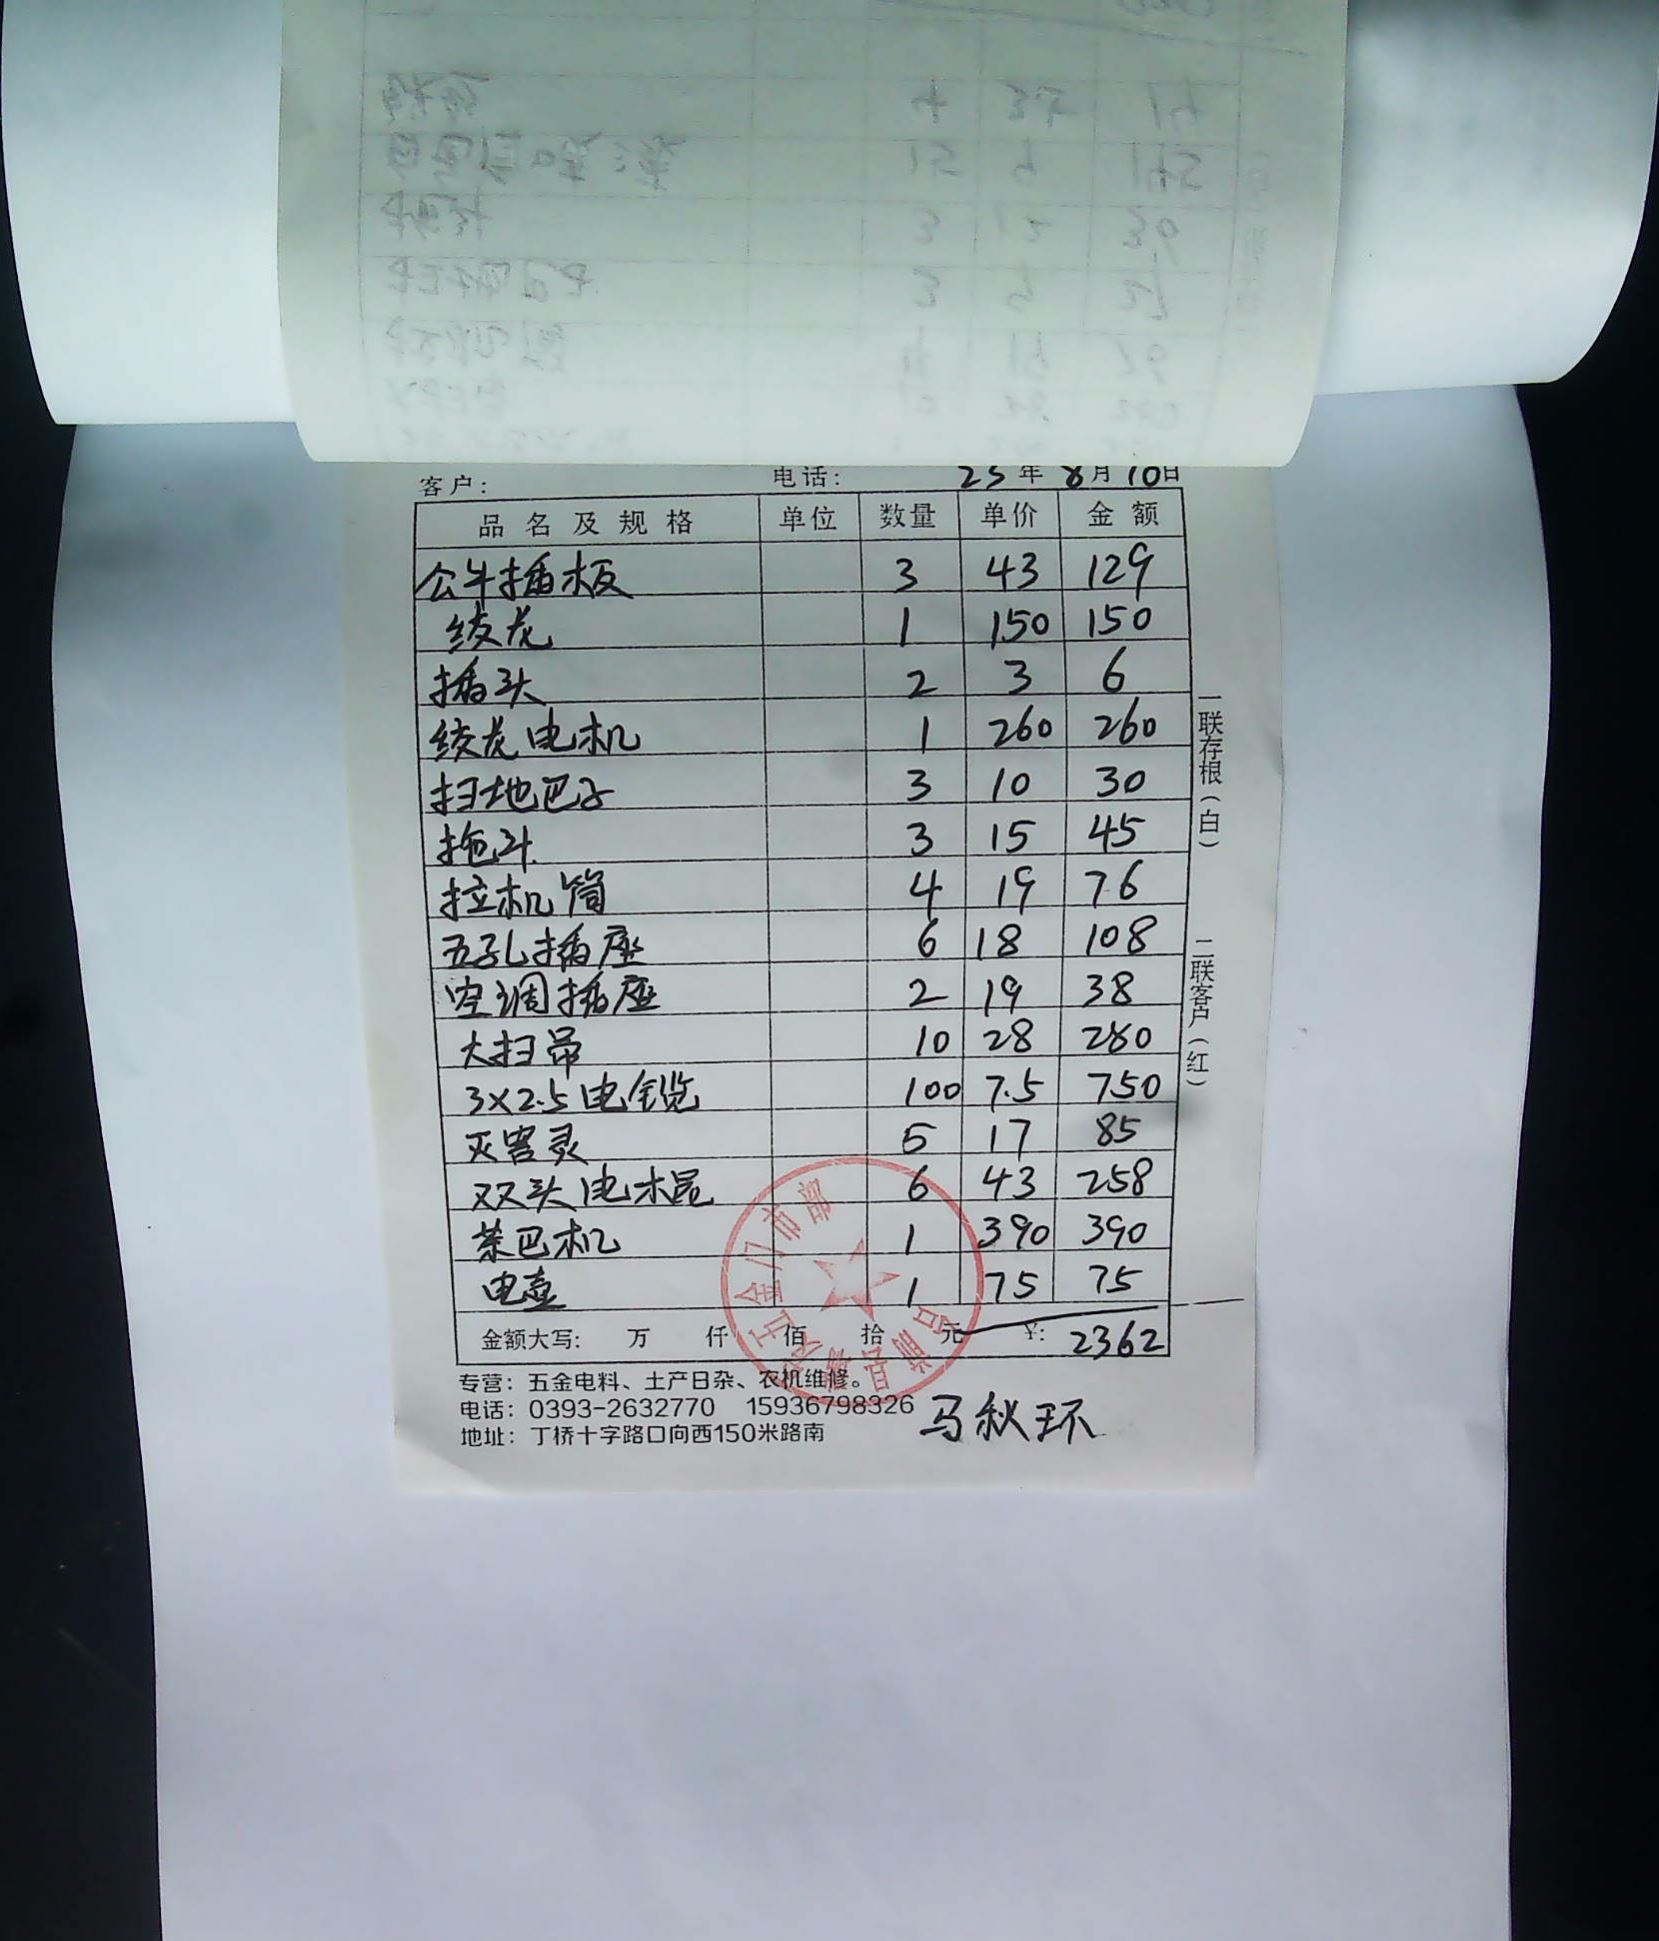 客户: 电话: 23年8月10日
品名及规格 单位 数量 单价 金额
公牛插板 3 43 129
绞龙 1 150 150
插头 2 3 6
绞龙电机 1 260 260
扫地巴子 3 10 30
拖斗 3 15 45
拉机筒 4 19 76
五孔插座 6 18 108
空调插座 2 19 38
大扫帚 10 28 280
3×2.5电缆 100 7.5 750
灭害灵 5 17 85
双头电木昆 6 43 258
茶巴机 1 390 390
电壶 1 75 75
金额大写: 万 仟 佰 拾 元 ¥: 2362
专营：五金电料、土产日杂、农机维修。
电话：0393-2632770 15936798326
地址：丁桥十字路口向西150米路南
马秋环
一联存根(白)
二联客户(红)